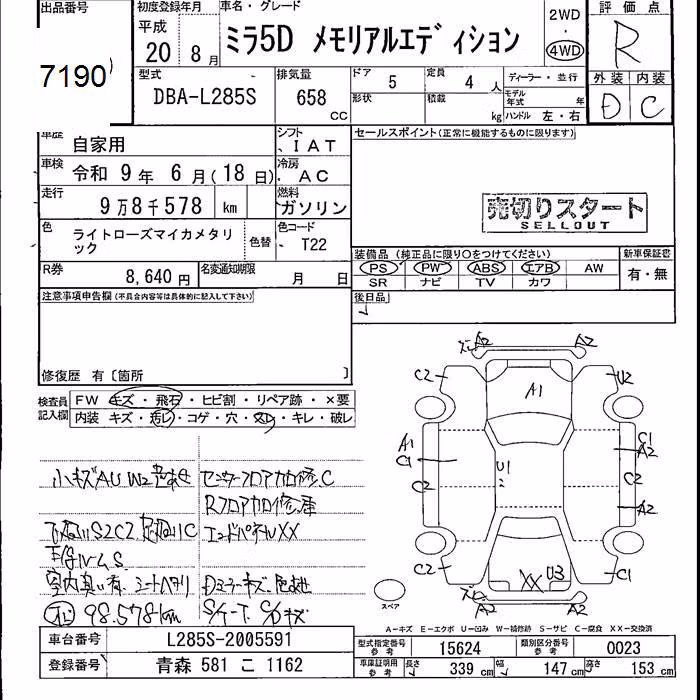 出品番号
7190
初度登録年月
平成
20 8月
車名・グレード
ミラ5D メモリアルエディション
2WD
・
4WD
評価点
R
型式
DBA-L285S
排気量
658 CC
ドア 5
定員 4人
形状
積載 kg
ディーラー・並行
モデル年式 年
ハンドル 左・右
外装 内装
D C
車歴
自家用
シフト
IAT
セールスポイント(正常に機能するものに限ります)
車検
令和 9年 6月(18日)
冷房
AC
走行
9万8千578 km
燃料
ガソリン
売切りスタート
SELLOUT
色
ライトローズマイカメタリック
色替
色コード
T22
装備品(純正品に限り○をつけてください)
新車保証書
PS ・ PW ・ ABS ・ エアB ・ AW
SR ナビ TV カワ
有・無
R券
8,640 円
名変通知期限
月 日
後日品
注意事項申告欄(不具合内容等は具体的に記入して下さい)
修復歴 有〔箇所 〕
検査員記入欄
FW キズ・飛石・ヒビ割・リペア跡・×要
内装 キズ・汚レ・コゲ・穴・スレ・キレ・破レ
小キズAU W2色あせ
センターフロア加修C
Rフロア加修歴
S2C2
エンドパネルXX
下廻り
室内臭い有 シートヘタリ
Dミラーキズ 色あせ
98.578km
A2 A2
C2 U2
A1
A1 C1
C1 A2
U1
C2
A2
C2 C1
XX U3
A2 A2
スペア
A-キズ E-エクボ U-凹み W-補修跡 S-サビ C-腐食 XX-交換済
車台番号
L285S-2005591
型式指定番号 参考
15624
類別区分番号 参考
0023
登録番号
青森 581 こ 1162
車庫証明用 参考
長さ 339 cm
幅 147 cm
高さ 153 cm